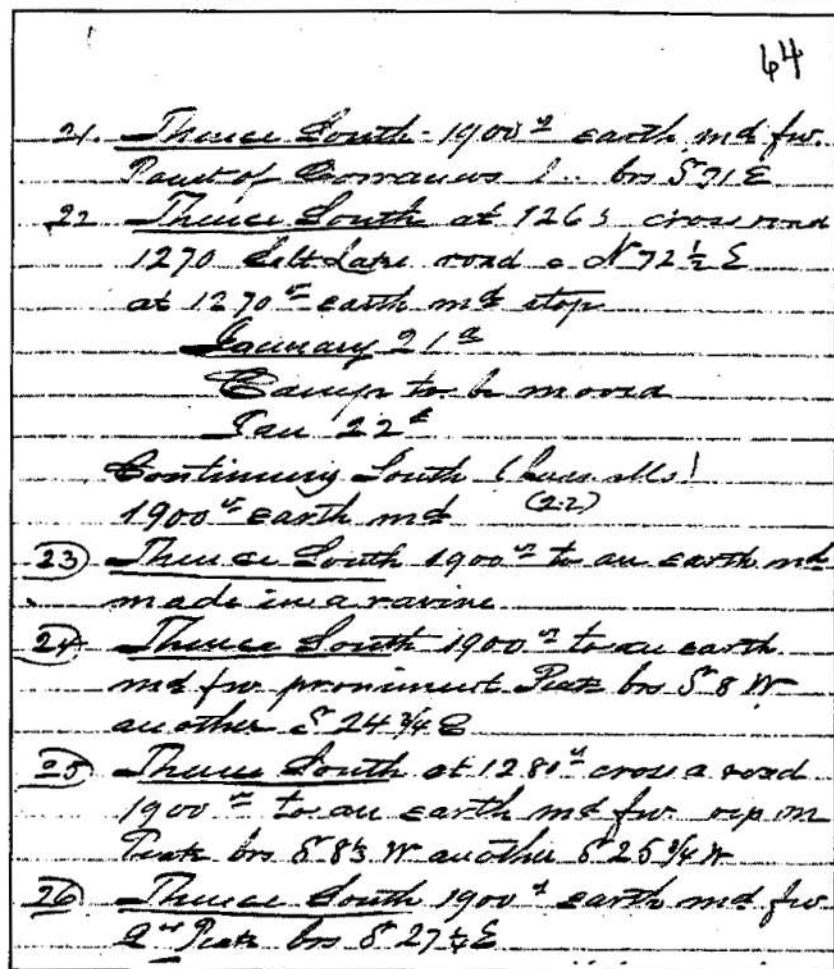 64
21. Thence South - 1900 vs earth md fw.
Point of brs S 71 E
22 Thence South at 1265 cross road
1270 Salt Lake road c N 72 1/2 E
at 1270 vs earth md stop
January 21st
Camp to be moved
Jan 22d
Continuing South
1900 vs earth md (22)
23 Thence South 1900 vs to an earth md
made in a ravine
24 Thence South 1900 vs to an earth
md fw prominent Peak brs S 8 W
another S 24 3/4 E
25 Thence South at 1280 vs cross a road
1900 vs to an earth md fw. on
Peak brs W another S 25 3/4
26 Thence South 1900 vs earth md fw
Peak brs S 27 1/4 E